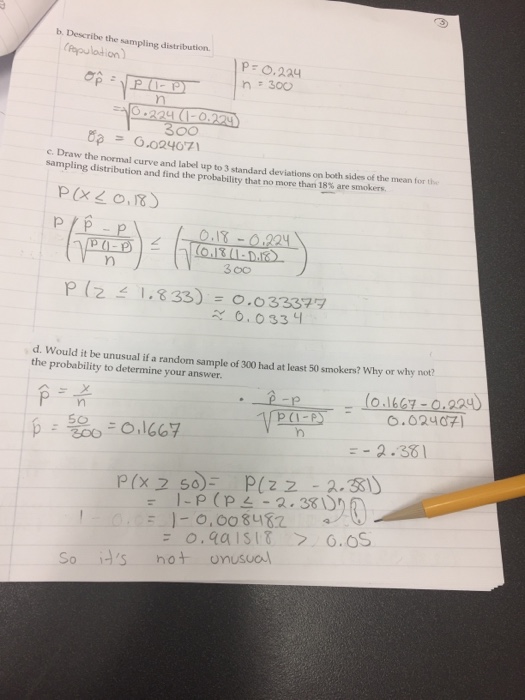 ③
b. Describe the sampling distribution.
(Population)
σp̂ = √(P(1-P)/n)
P = 0.224
n = 300
= √(0.224(1-0.224)/300)
σp̂ = 0.024071
c. Draw the normal curve and label up to 3 standard deviations on both sides of the mean for the
sampling distribution and find the probability that no more than 18% are smokers.
P(X ≤ 0.18)
P (p̂ - P / √(P(1-P)/n)) ≤ (0.18 - 0.224 / √(0.18(1-0.18)/300))
P(z ≤ 1.833) = 0.033377
≈ 0.0334
d. Would it be unusual if a random sample of 300 had at least 50 smokers? Why or why not?
the probability to determine your answer.
p̂ = x/n
p̂ = 50/300 = 0.1667
· p̂ - P / √(P(1-P)/n) = (0.1667 - 0.224) / 0.024071
= - 2.381
P(x ≥ 50) = P(z ≥ - 2.381)
= 1 - P (P ≤ - 2.381)
= 1 - 0.008482
= 0.991518 > 0.05
So it's not unusual